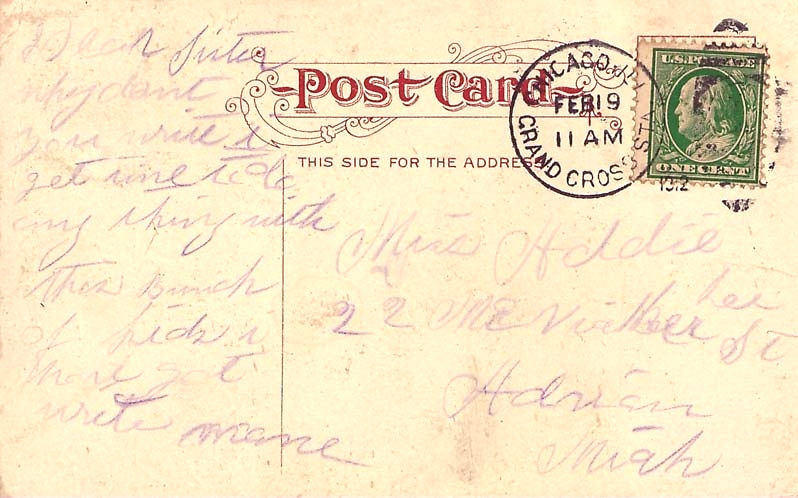 Post Card
THIS SIDE FOR THE ADDRESS
CHICAGO, ILL.
FEB 19
11 AM
GRAND CROSS STA.
1912
U.S. POSTAGE
ONE CENT
Dear Sister
why dont
you write i
get time to do
any thing with
this bunch
of kids i
have got
write
Miss Addie
Lee
22 Mc Vicker St
Adrian
Mich